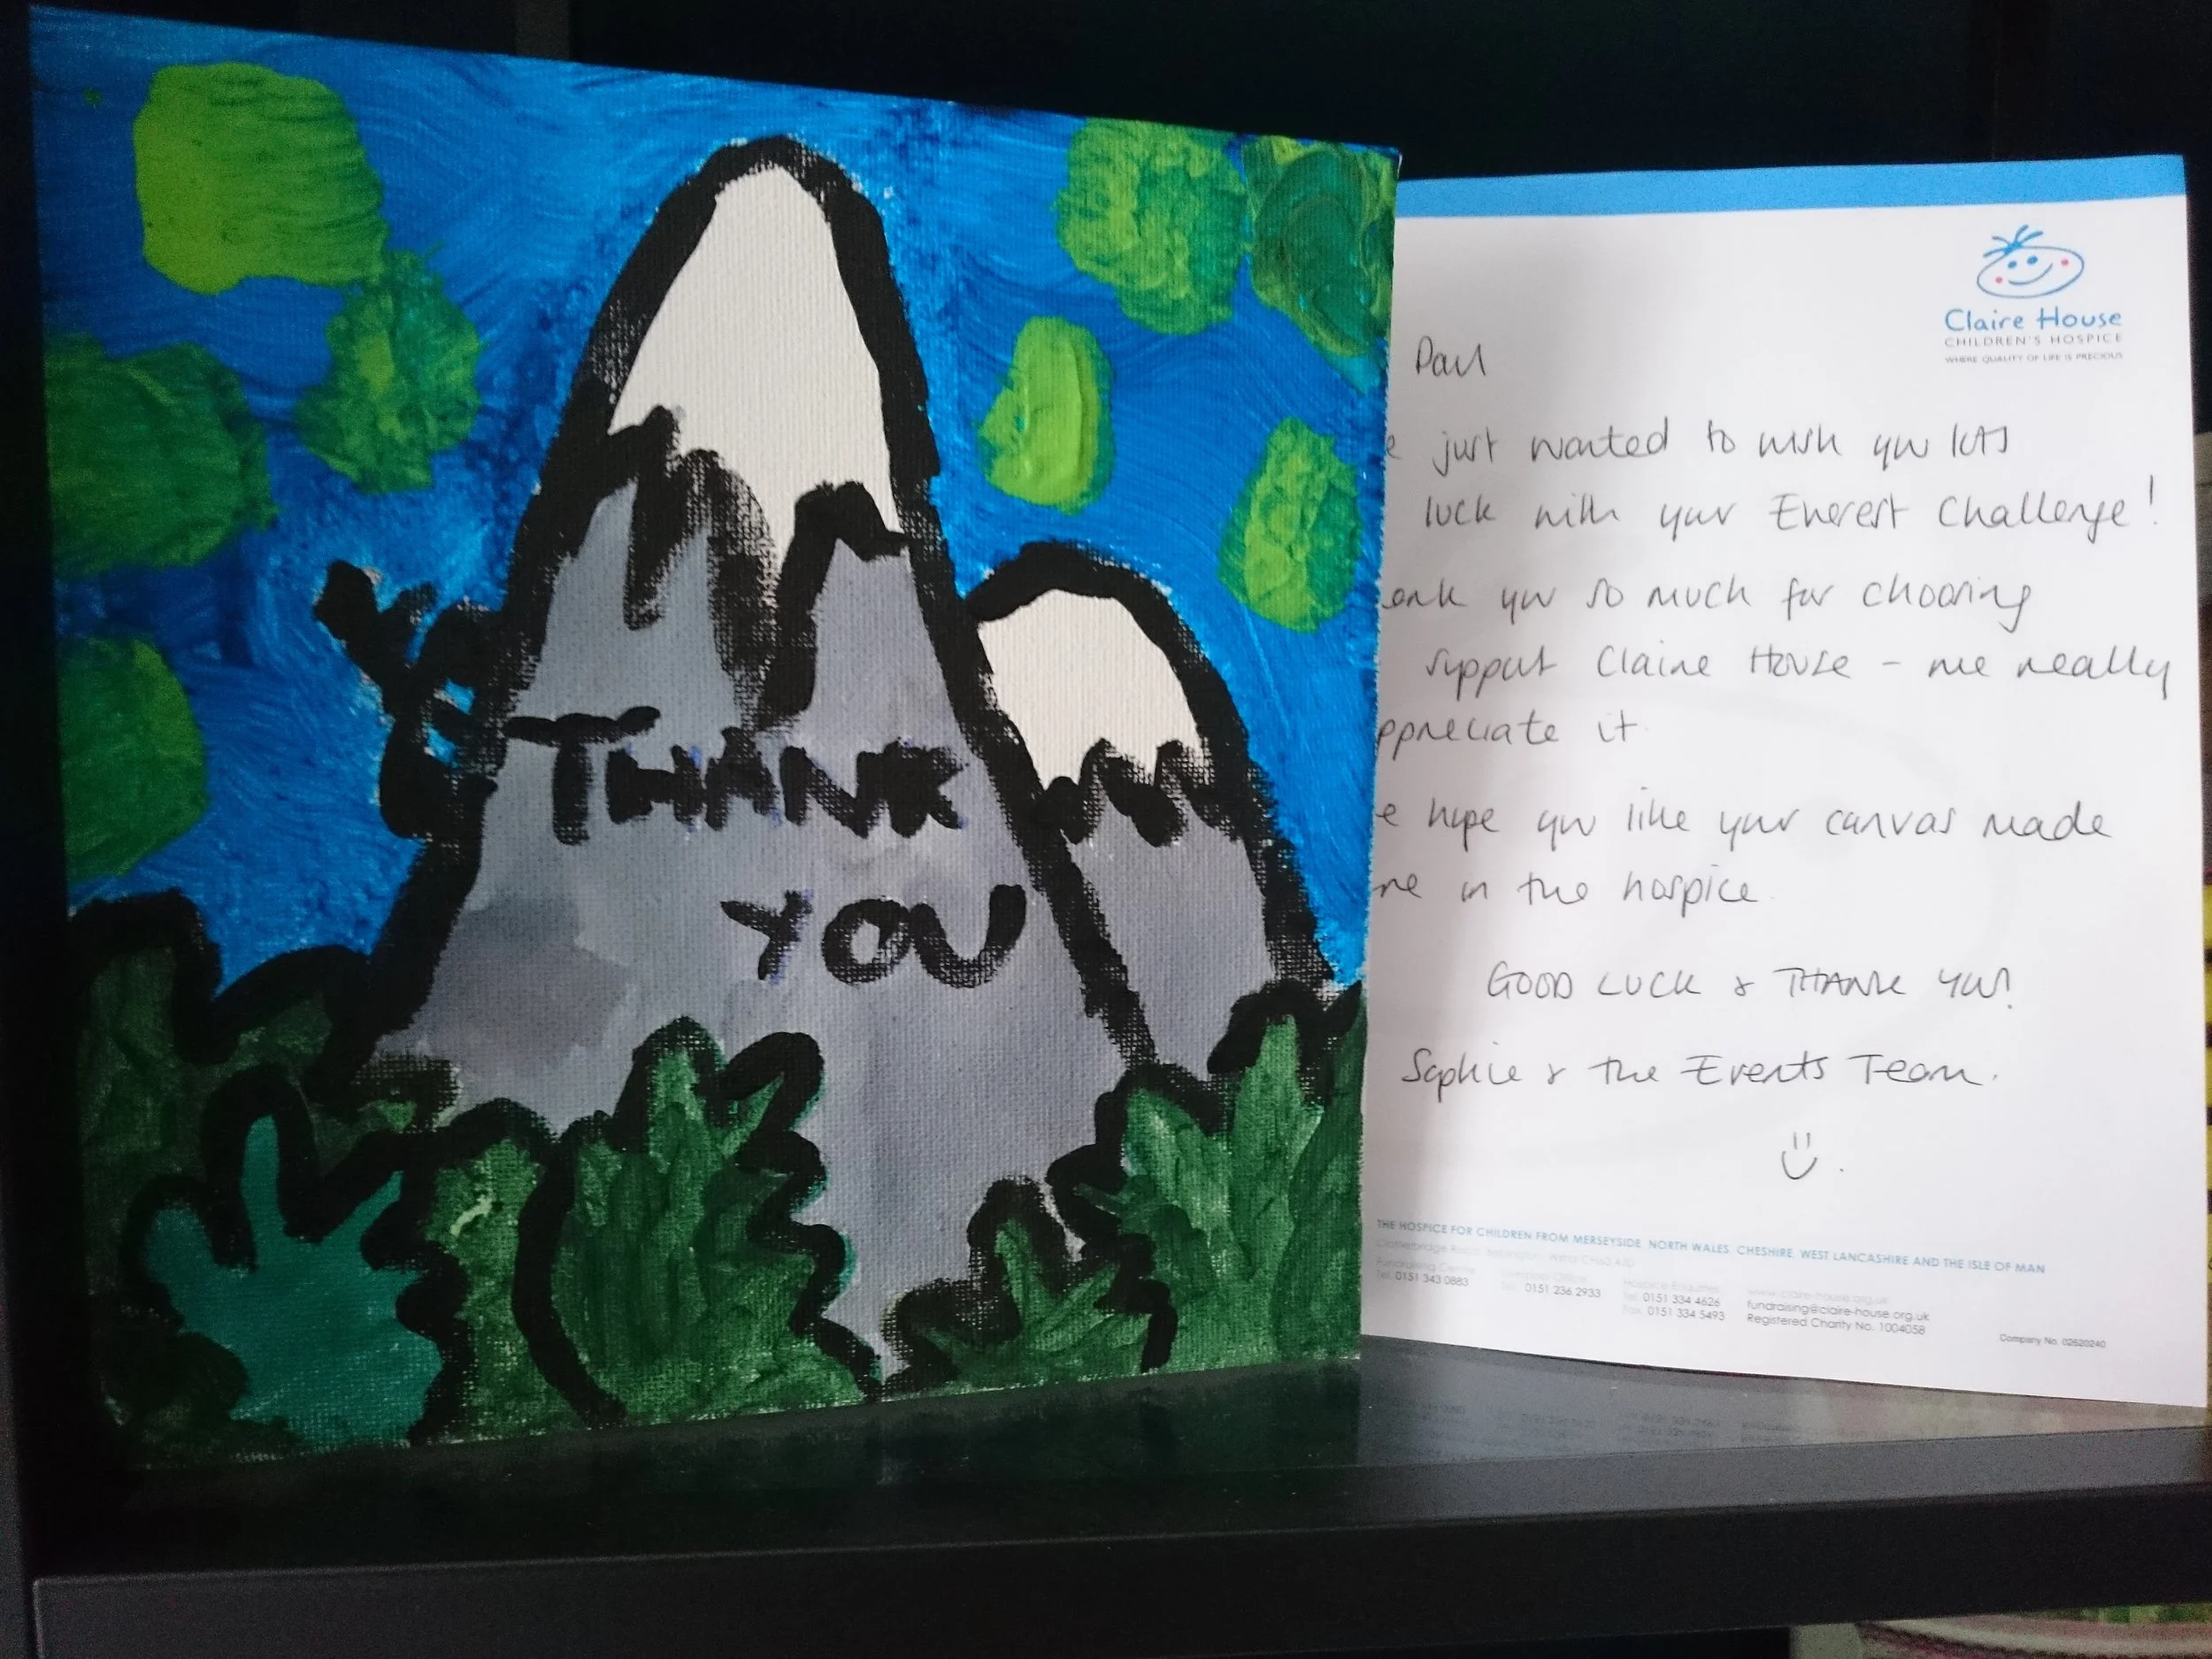 THANK
YOU
Claire House
CHILDREN'S HOSPICE
WHERE QUALITY OF LIFE IS PRECIOUS
Paul
e just wanted to wish you lots
luck with your Everest Challenge!
ank you so much for choosing
support Claire House - we really
ppreciate it.
e hope you like your canvas made
re in the hospice.
GOOD LUCK & THANK YOU!
Sophie & the Events Team.
THE HOSPICE FOR CHILDREN FROM MERSEYSIDE, NORTH WALES, CHESHIRE, WEST LANCASHIRE AND THE ISLE OF MAN
Clatterbridge Road, Bebington, Wirral CH63 4JD
Fundraising Centre
Tel: 0151 343 0883
Liverpool Office
Tel: 0151 236 2933
Hospice Enquiries
Tel: 0151 334 4626
Fax: 0151 334 5493
www.claire-house.org.uk
fundraising@claire-house.org.uk
Registered Charity No. 1004058
Company No. 02620240